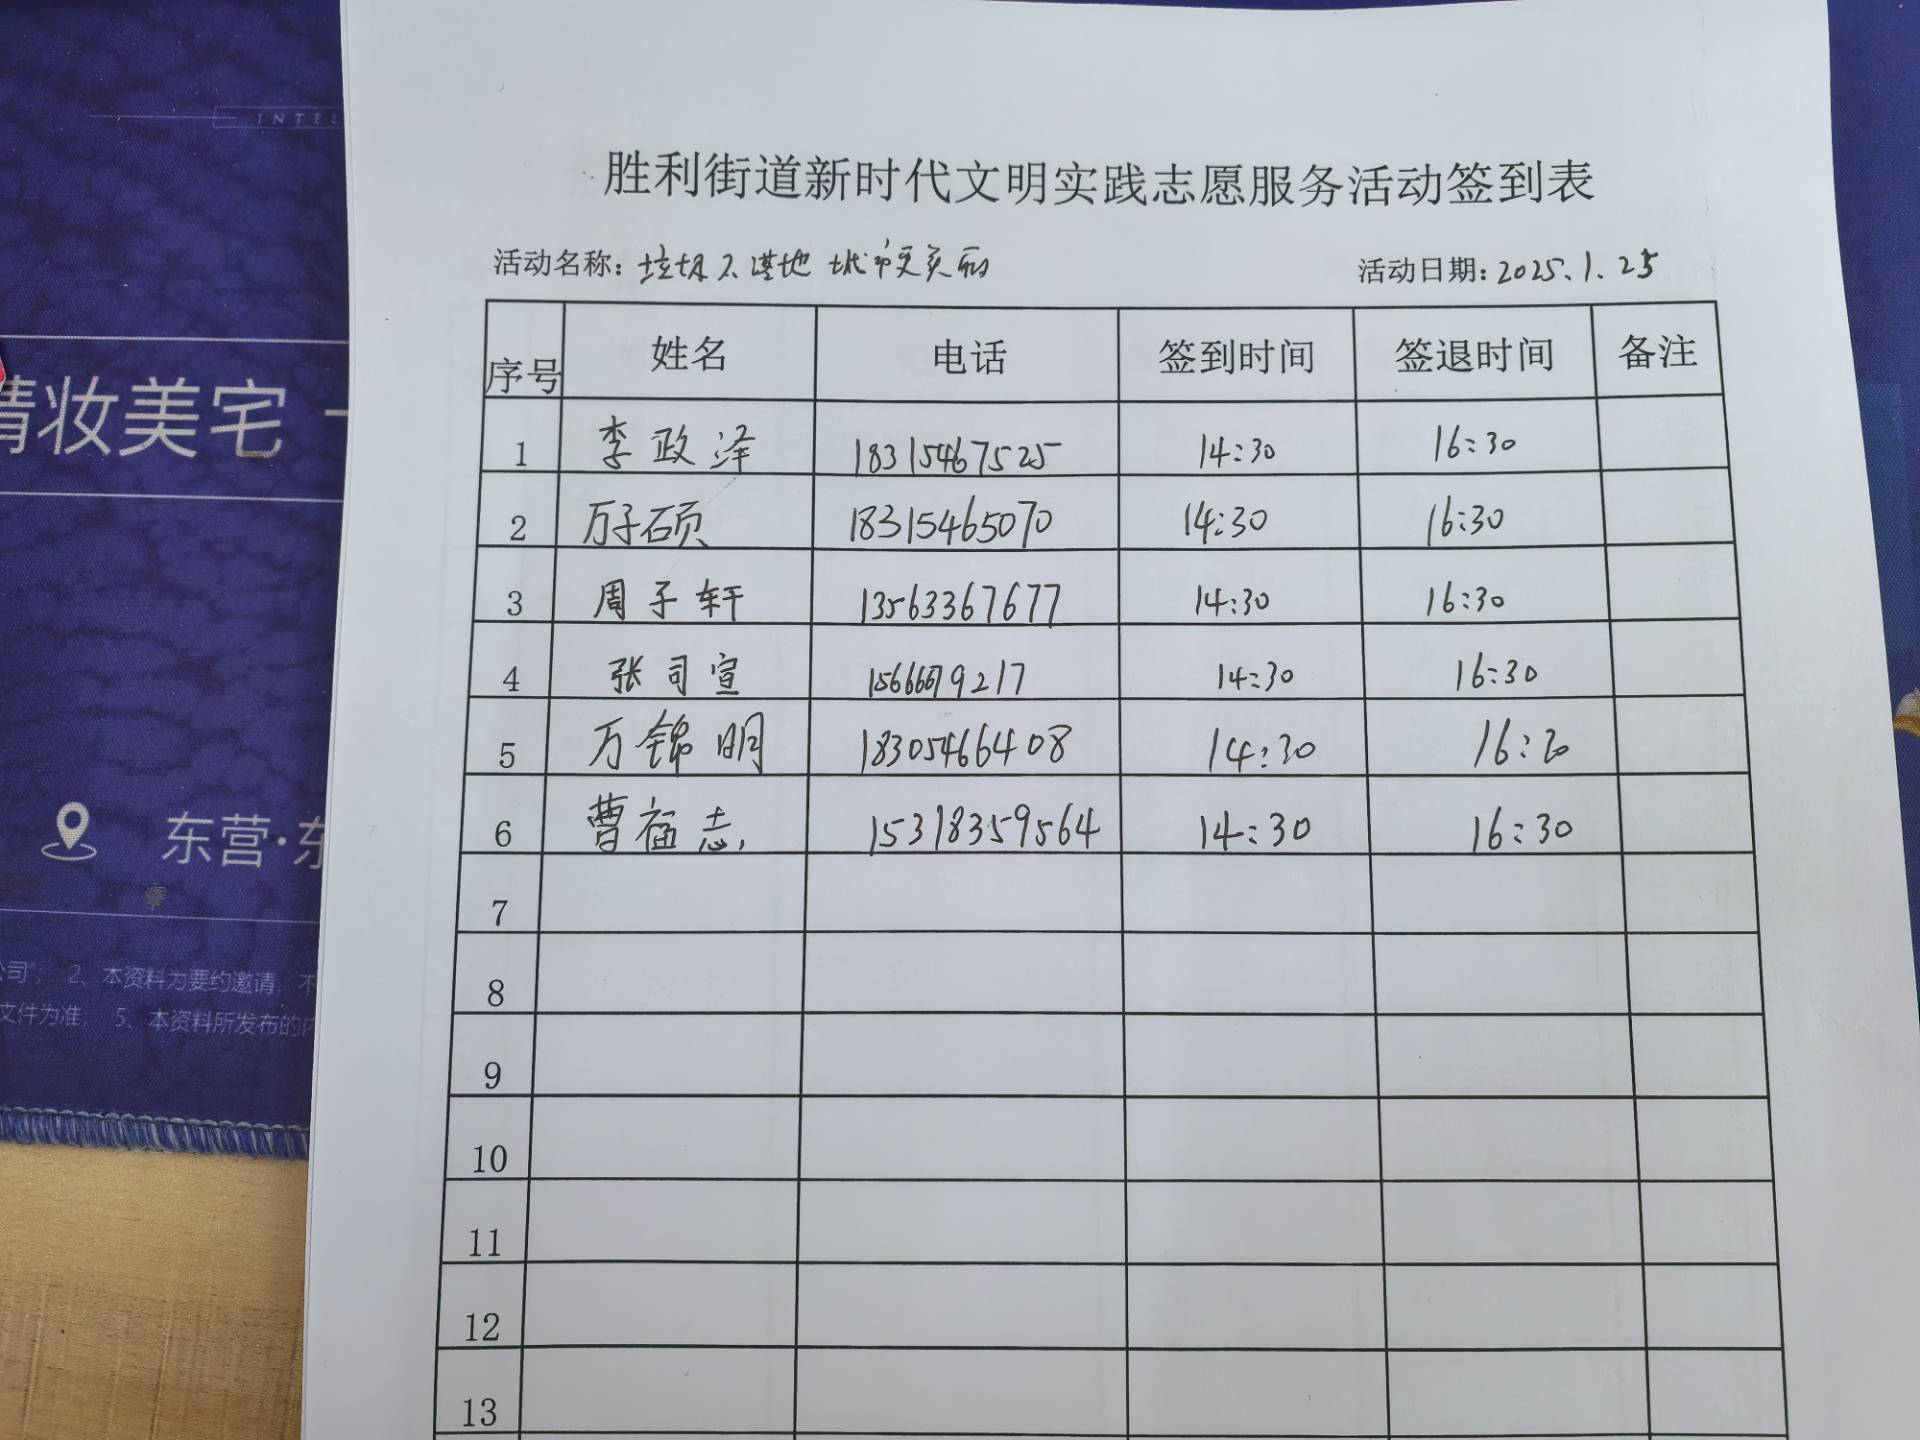 INTEL
精妆美宅
东营·东
公司"； 2、本资料为要约邀请，不
文件为准； 5、本资料所发布的内
胜利街道新时代文明实践志愿服务活动签到表
活动名称：垃圾不落地 城市更美丽 活动日期：2025.1.25
序号 姓名 电话 签到时间 签退时间 备注
1 李政泽 18315467525 14:30 16:30
2 万子硕 18315465070 14:30 16:30
3 周子轩 13563367677 14:30 16:30
4 张司宣 14:30 16:30
5 万锦明 18305466408 14:30 16:30
6 曹福志 15318359564 14:30 16:30
7
8
9
10
11
12
13